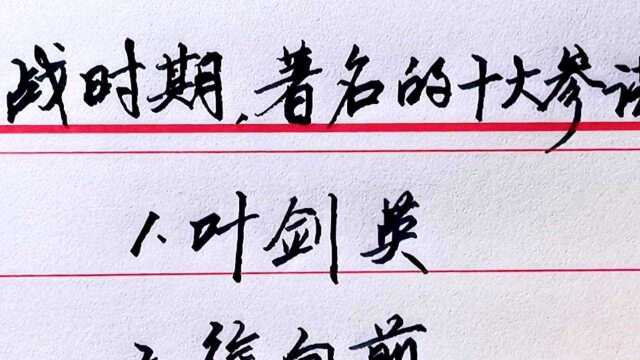 战时期、著名的十大参谋
1、叶剑英
2、徐向前